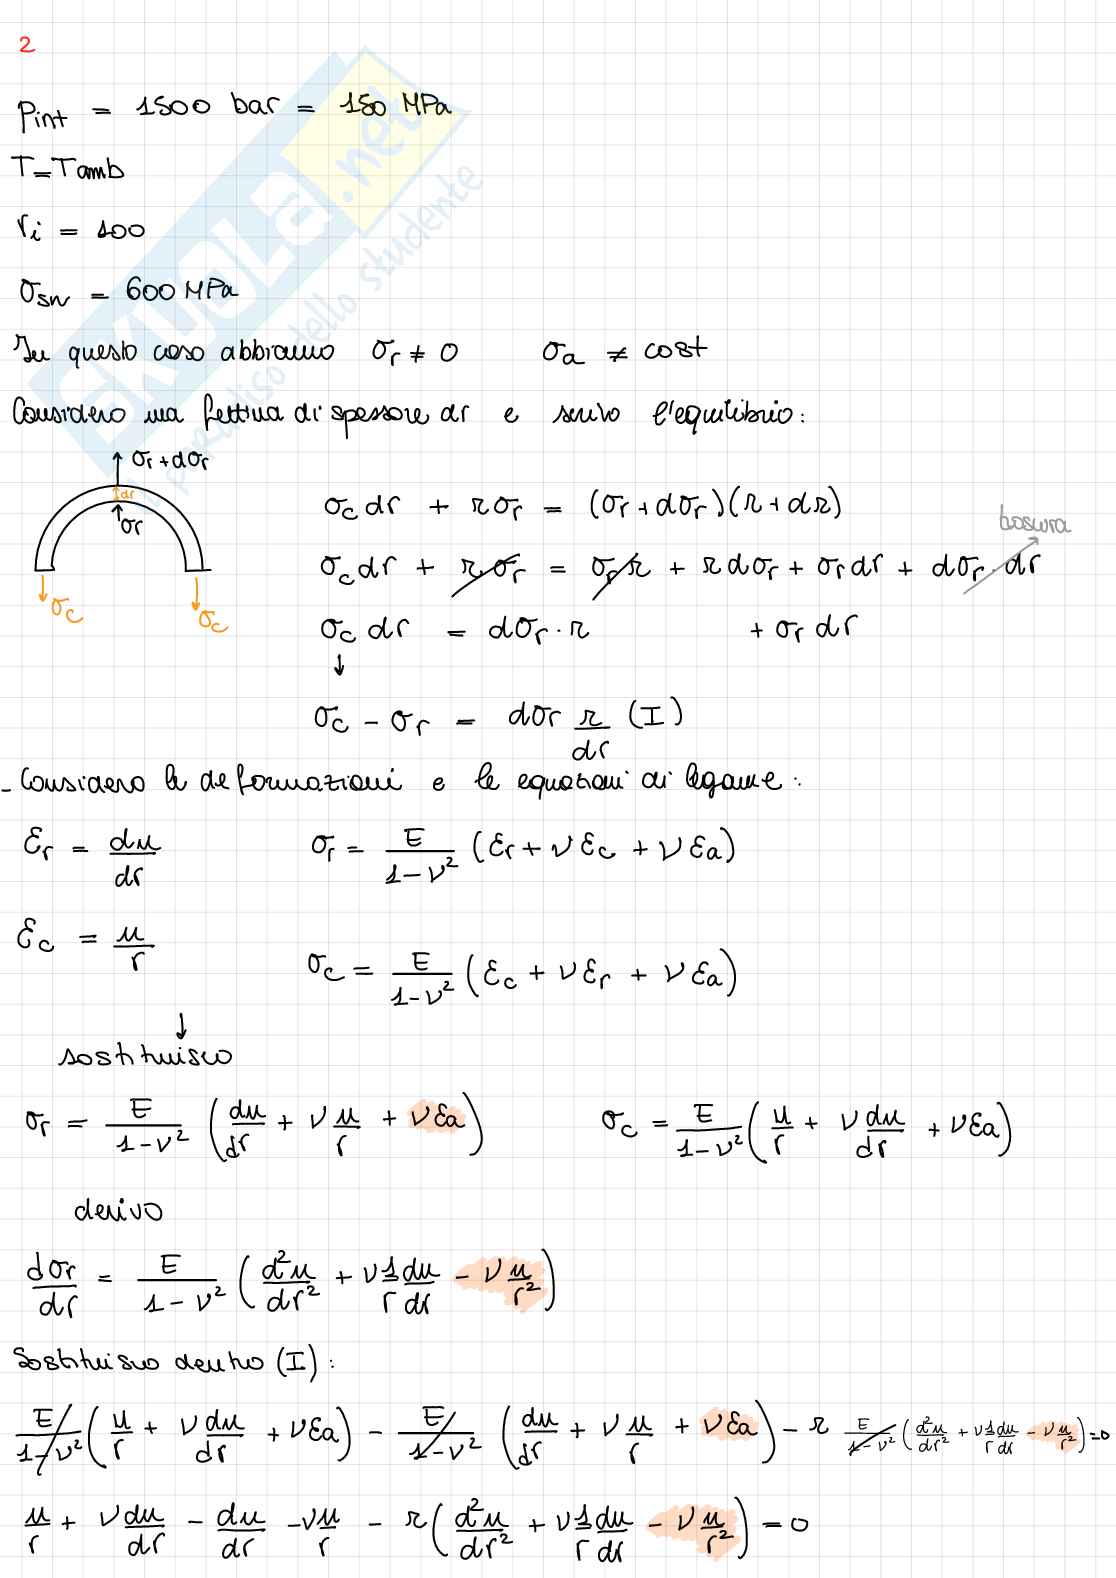 2
Pint = 1500 bar = 150 MPa
T=Tamb
ri = 100
σsn = 600 MPa
In questo caso abbiamo σr ≠ 0 σa ≠ cost
Considero una fettina di spessore dr e scrivo l'equilibrio:
σr + dσr
dr
σr
σc
σc
σc dr + r σr = (σr + dσr)(r + dr)
trascura
σc dr + r σr = σr r + r dσr + σr dr + dσr · dr
σc dr = dσr · r + σr dr
↓
σc - σr = dσr r/dr (I)
- Considero le deformazioni e le equazioni di legame:
εr = du/dr σr = E/(1-ν²) (εr + ν εc + ν εa)
εc = u/r σc = E/(1-ν²) (εc + ν εr + ν εa)
↓
sostituisco
σr = E/(1-ν²) (du/dr + ν u/r + ν εa) σc = E/(1-ν²) (u/r + ν du/dr + ν εa)
derivo
dσr/dr = E/(1-ν²) (d²u/dr² + ν 1/r du/dr - ν u/r²)
Sostituisco dentro (I):
E/(1-ν²) (u/r + ν du/dr + ν εa) - E/(1-ν²) (du/dr + ν u/r + ν εa) - r E/(1-ν²) (d²u/dr² + ν 1/r du/dr - ν u/r²) = 0
u/r + ν du/dr - du/dr - ν u/r - r (d²u/dr² + ν 1/r du/dr - ν u/r²) = 0
SKUOLA.net
paradiso dello studente